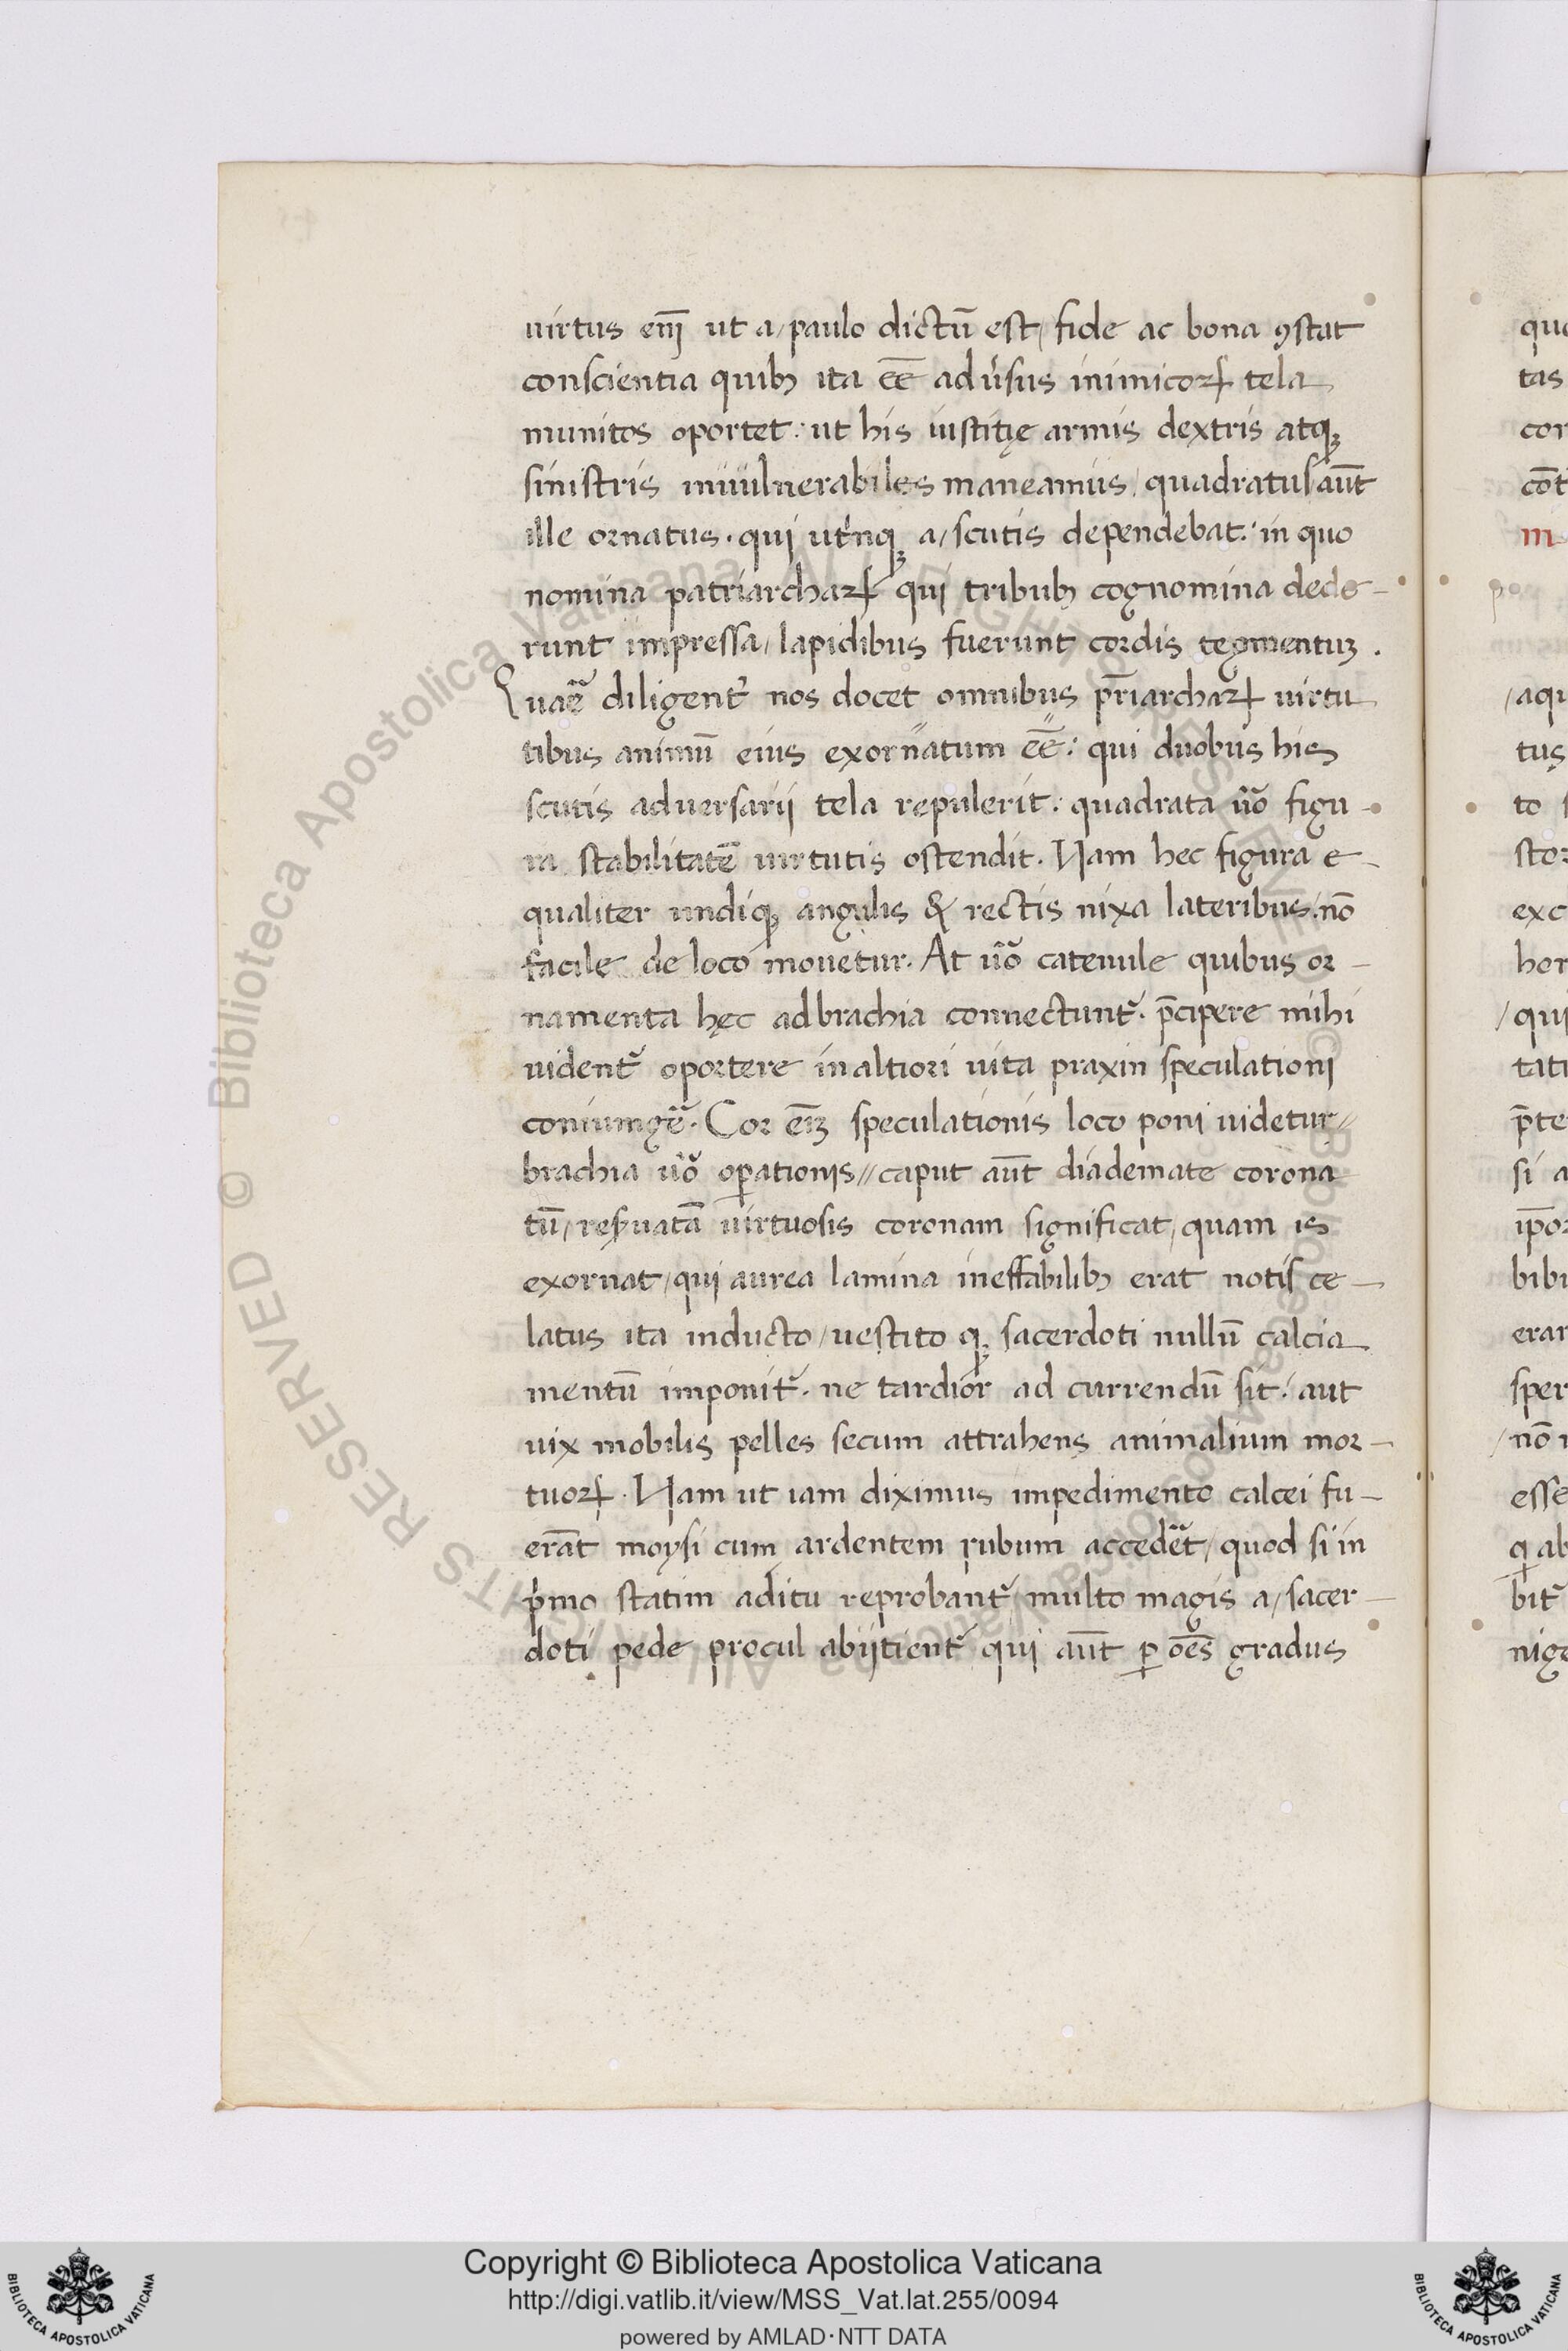 uirtus enĩ ut a/paulo dictū est/ fide ac bona ꝯstat
conscientia quibꝫ ita eē̄ adu̓sus inimicoꝝ tela
munitos oportet: ut his iustitię armis dextris atqꝫ
sinistris inuulnerabiles maneamus/ quadratus aūt
ille ornatus. qui ut̓nqꝫ a/scutis dependebat: in quo
nomina patriarchaꝝ qui tribubꝫ cognomina dede-
runt impressa/lapidibus fuerunt cordis tegmentuꝫ.
Quaẽ diligent̃ nos docet omnibus pr̄iarchaꝝ uirtu
tibus animū eius exornatum eē̄: qui duobus his
scutis aduersarij tela repulerit: quadrata u̓o figu-
ra stabilitatē uirtutis ostendit. Nam hec figura e-
qualiter undiqꝫ angulis & rectis nixa lateribus: nō
facile de loco mouetur. At u̓o catenule quibus or-
namenta hęc ad brachia connectunt̃. p̄cipere mihi
uident̃ oportere in altiori uita praxin speculationi
coniungẽ. Cor eĩꝫ speculationis loco poni uidetur//
brachia u̓o oꝑationis// caput aūt diademate corona
tū/ resꝑuatā uirtuosis coronam significat/ quam is
exornat/ qui aurea lamina ineffabilibꝫ erat notis ce-
latus ita inducto/ uestito qꝫ sacerdoti nullū calcia
mentū imponit̃. ne tardior ad currendū sit: aut
uix mobilis pelles secum attrahens animalium mor-
tuoꝝ. Nam ut iam diximus impedimento calcei fu-
erāt moysi cum ardentem rubum accedẽt/ quod si in
p̓mo statim aditu reprobant̃/ multo magis a/sacer-
doti pede procul abijtient̃ qui aūt ꝑ oēs gradus
qu
tas
cor
cōt
m
po
/aqu
tus
to s
stor
exc
her
/qui
tati
p̄te
si a
ip̄or
bibi
erar
sper
/nō
esse
qꝫ ab
bit̃
nige
Copyright © Biblioteca Apostolica Vaticana
http://digi.vatlib.it/view/MSS_Vat.lat.255/0094
powered by AMLAD·NTT DATA
BIBLIOTECA APOSTOLICA VATICANA
BIBLIOTECA APOSTOLICA VATICANA